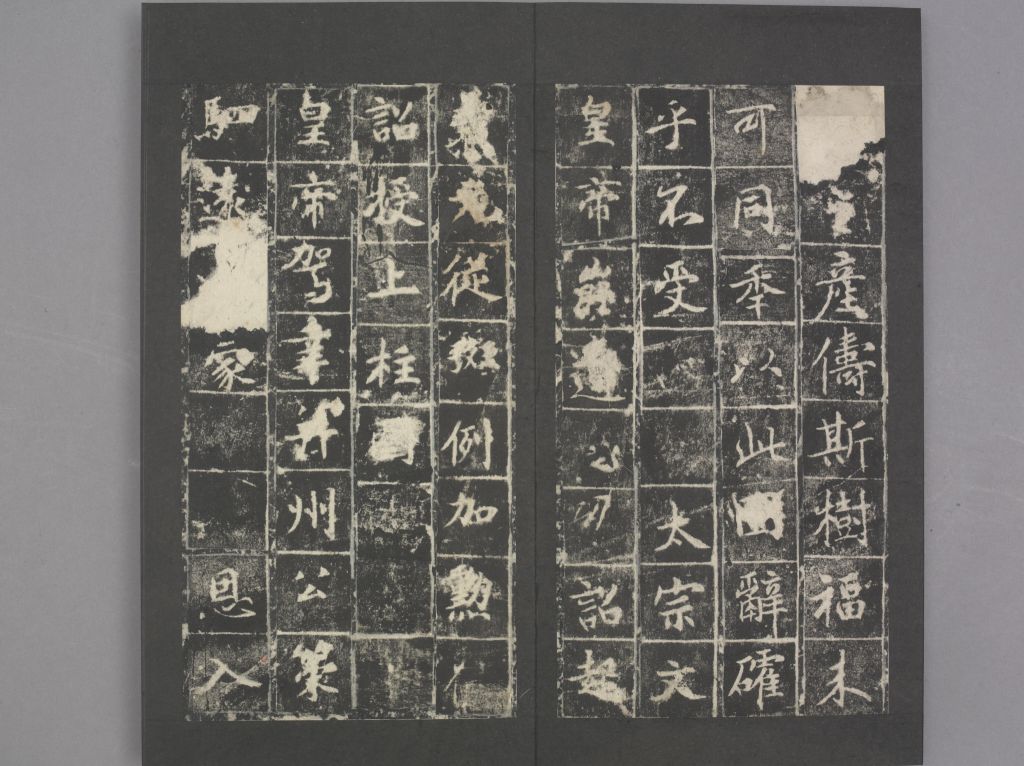 產儔斯樹福未
可同年以此固辭確
乎不受太宗文
皇帝遺詔起
義元從擬例加勲
詔授上柱國
皇帝駕幸并州公策
駟家恩入